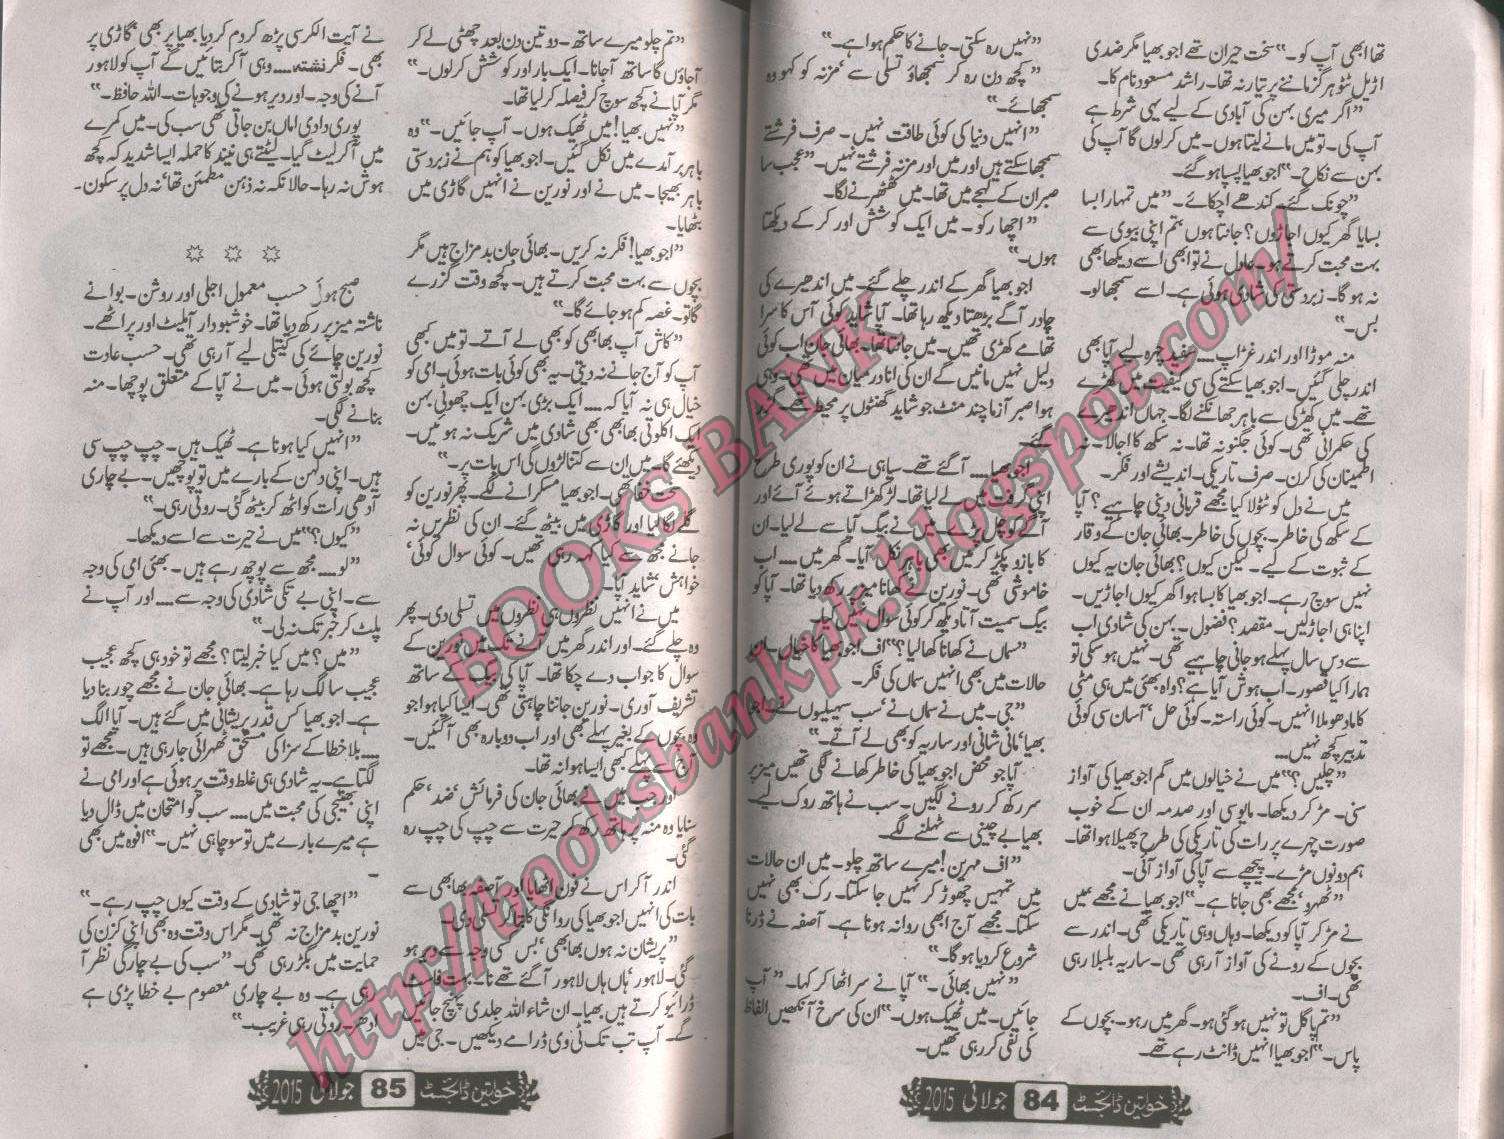 تھا ابھی آپ کو۔“ سخت حیران تھے اجو بھیا مگر ضدی
اڑیل ٹٹو ہر گز ماننے پر تیار نہ تھا۔ راشد مسعود نام کا۔
”اگر میری بہن کی آبادی کے لیے یہی شرط ہے
آپ کی۔ تو میں مانے لیتا ہوں۔ میں کرلوں گا آپ کی
بہن سے نکاح۔“ اجو بھیا پسپا ہو گئے۔
”چونک گئے۔ کندھے اچکائے۔ ”میں تمہارا بسا
بسایا گھر کیوں اجاڑوں؟ جانتا ہوں تم اپنی بیوی سے
بہت محبت کرتے ہو۔ عادل نے تو ابھی اسے دیکھا بھی
نہ ہو گا۔ زبردستی کی شادی ہوئی ہے۔ اسے سمجھالو۔
بس۔“
منہ موڑا اور اندر غڑاپ.... سفید چہرہ لیے آپا بھی
اندر چلی گئیں۔ اجو بھیا سکتے کی سی کیفیت میں کھڑے
تھے۔ میں کھڑکی سے باہر جھانکنے لگا۔ جہاں اندھیرے
کی حکمرانی تھی۔ کوئی جگنو نہ تھا۔ نہ سکھ کا اجالا۔ نہ
اطمینان کی کرن۔ صرف تاریکی۔ اندیشے اور فکر۔
میں نے دل کو ٹٹولا کیا مجھے قربانی دینی چاہیے؟ آپا
کے سکھ کی خاطر۔ بچوں کی خاطر۔ بھائی جان کے وقار
کے ثبوت کے لیے۔ لیکن کیوں؟ بھائی جان یہ کیوں
نہیں سوچ رہے۔ اجو بھیا کا بسا ہوا گھر کیوں اجاڑیں۔
اپنا ہی اجاڑیں۔ مقصد؟ فضول۔ بہن کی شادی اب
سے دس سال پہلے ہو جانی چاہیے تھی۔ نہیں ہو سکی تو
ہمارا کیا قصور۔ اب ہوش آیا ہے؟ واہ بھئی میں ہی مٹی
کا مادھو ملا انہیں۔ کوئی راستہ۔ کوئی حل، آسان سی کوئی
تدبیر کچھ نہیں....
”چلیں؟“ میں نے خیالوں میں گم اجو بھیا کی آواز
سنی۔ مڑ کر دیکھا۔ مایوسی اور صدمہ ان کے خوب
صورت چہرے پر رات کی تاریکی کی طرح پھیلا ہوا تھا۔
ہم دونوں مڑے۔ پیچھے سے آپا کی آواز آئی۔
”ٹھہرو، مجھے بھی جانا ہے۔“ اجو بھیا نے مجھے میں
نے مڑ کر آپا کو دیکھا۔ وہاں وہی تاریکی تھی۔ اندر سے
بچوں کے رونے کی آواز آرہی تھی۔ ساریہ بلبلا رہی
تھی۔ اف۔
”تم پاگل تو نہیں ہو گئی ہو۔ گھر میں رہو۔ بچوں کے
پاس۔“ اجو بھیا انہیں ڈانٹ رہے تھے۔
”نہیں رہ سکتی۔ جانے کا حکم ہوا ہے۔“
”کچھ دن رہ کر سمجھاؤ تسلی سے، مزنہ کو کہو وہ
سمجھائے۔“
”انہیں دنیا کی کوئی طاقت نہیں۔ صرف فرشتے
سمجھا سکتے ہیں اور میں اور مزنہ فرشتے نہیں۔“ عجیب سا
صبر ان کے لہجے میں تھا۔ میں ٹھٹھرنے لگا۔
”اچھا رکو۔ میں ایک کوشش اور کر کے دیکھتا
ہوں۔“
اجو بھیا گھر کے اندر چلے گئے۔ میں اندھیرے کی
چادر آگے بڑھتا دیکھ رہا تھا۔ آپا شاید کوئی آس کا سرا
تھامے کھڑی تھیں۔ میں جانتا تھا۔ بھائی جان اب کوئی
دلیل نہیں مانیں گے ان کی انا درمیان میں تھی۔ وہی
ہوا صبر آزما چند منٹ جو شاید گھنٹوں پر محیط تھے۔ گزر
گئے۔
اجو بھیا.... آ گئے تھے۔ سیاہی نے ان کو پوری طرح
اپنی گرفت میں لے لیا تھا۔ لڑکھڑاتے ہوئے آئے اور
آگے کو چل دیے۔ میں نے بیگ آپا سے لے لیا۔ ان
کا بازو پکڑ کر میں بھی باہر نکل آیا۔ گھر میں.... اب
خاموشی تھی۔ نورین نے کھانا میز پر رکھ دیا تھا۔ آپا کو
بیگ سمیت آتا دیکھ کر کوئی سوال نہیں کیا۔
”سماں نے کھانا کھا لیا؟“ اف اجو بھیا کا خیال۔ ان
حالات میں بھی انہیں سماں کی فکر۔
”جی۔ میں نے سماں نے، سب سہیلیوں نے۔ اجو
بھیا، مانی شانی اور ساریہ کو بھی لے آتے۔“
آپا جو محض اجو بھیا کی خاطر کھانے لگی تھیں میز پر
سر رکھ کر رونے لگیں۔ سب نے ہاتھ روک لیے۔
بھیا بے چینی سے ٹہلنے لگے۔
”اف مہرین! میرے ساتھ چلو۔ میں ان حالات
میں تمہیں چھوڑ کر نہیں جا سکتا۔ رک بھی نہیں
سکتا۔ مجھے آج ابھی روانہ ہونا ہے۔ آصفہ نے ڈرنا
شروع کر دیا ہو گا۔“
”نہیں بھائی۔“ آپا نے سر اٹھا کر کہا۔ ”آپ
جائیں۔ میں ٹھیک ہوں۔“ ان کی سرخ آنکھیں الفاظ
کی نفی کر رہی تھیں۔
خواتین ڈائجسٹ 84 جولائی 2015
”تم چلو میرے ساتھ۔ دو تین دن بعد چھٹی لے کر
آجاؤں گا ساتھ آجانا۔ ایک بار اور کوشش کر لوں۔“
مگر آپا نے کچھ سوچ کر فیصلہ کر لیا تھا۔
”نہیں بھیا! میں ٹھیک ہوں۔ آپ جائیں۔“ وہ
باہر برآمدے میں نکل گئیں۔ اجو بھیا کو ہم نے زبردستی
باہر بھیجا۔ میں نے اور نورین نے انہیں گاڑی میں
بٹھایا۔
”اجو بھیا! فکر نہ کریں۔ بھائی جان بد مزاج ہیں مگر
بچوں سے بہت محبت کرتے ہیں۔ کچھ وقت گزرے
گا تو۔ غصہ کم ہو جائے گا۔“
”کاش آپ بھابھی کو بھی لے آتے۔ تو میں کبھی
آپ کو آج جانے نہ دیتی۔ یہ بھی کوئی بات ہوئی۔ امی کو
خیال ہی نہ آیا کہ.... ایک بڑی بہن ایک چھوٹی بہن
ایک اکلوتی بھابھی بھی شادی میں شریک نہ ہوئیں۔
دیکھئے گا۔ میں ان سے کتنا لڑوں گی اس بات پر۔“
سخت خفا تھی۔ اجو بھیا مسکرانے لگے۔ پھر نورین کو
گلے لگا لیا اور گاڑی میں بیٹھ گئے۔ ان کی نظریں نہ
جانے مجھ سے کیا کہہ رہی تھیں۔ کوئی سوال کوئی
خواہش، شاید آپا۔
میں نے انہیں نظروں ہی نظروں میں تسلی دی۔ پھر
وہ چلے گئے۔ اور اندر گھر میں آنے تک میں نورین کے
سوال کا جواب دے چکا تھا۔ آپا کی بیگ کے ساتھ
تشریف آوری۔ نورین جاننا چاہتی تھی۔ ایسا کیا ہوا جو
وہ بچوں کے بغیر پہلے بھی اور اب دوبارہ بھی آ گئیں۔
آج سے پہلے کبھی ایسا ہوا نہ تھا۔
اور جب میں نے بھائی جان کی فرمائش، ضد، حکم
سنایا وہ منہ پر ہاتھ رکھ کر حیرت سے چپ کی چپ رہ
گئی۔
اندر آ کر اس نے فون اٹھایا اور آصفہ بھابھی سے
بات کی انہیں اجو بھیا کی روانگی کا بتا کر تسلی دی۔
”پریشان نہ ہوں بھابھی، بس کسی وجہ سے دیر ہو
گئی۔ لاہور، ہاں ہاں لاہور آ گئے تھے نا۔ بہت فاسٹ
ڈرائیو کرتے ہیں بھیا۔ ان شاء اللہ جلدی پہنچ جائیں
گے۔ آپ تب تک ٹی وی ڈرامے دیکھیں۔ جی میں
نے آیت الکرسی پڑھ کر دم کر دیا بھیا پر بھی، گاڑی پر
بھی۔ فکر نشتہ.... وہی آ کر بتائیں گے آپ کو لاہور
آنے کی وجہ۔ اور دیر ہونے کی وجوہات۔ اللہ حافظ۔“
پوری دادی اماں بن جاتی تھی سب کی۔ میں کمرے
میں آ کر لیٹ گیا۔ لیٹتے ہی نیند کا حملہ ایسا شدید کہ کچھ
ہوش نہ رہا۔ حالانکہ نہ ذہن مطمئن تھا، نہ دل پر سکون۔
☼ ☼ ☼
صبح ہوئی حسب معمول اجلی اور روشن۔ بوا نے
ناشتہ میز پر رکھ دیا تھا۔ خوشبودار آملیٹ اور پراٹھے۔
نورین چائے کی کیتلی لیے آ رہی تھی۔ حسب عادت
کچھ بولتی ہوئی۔ میں نے آپا کے متعلق پوچھا۔ منہ
بنانے لگی۔
”انہیں کیا ہونا ہے۔ ٹھیک ہیں۔ چپ چپ سی
ہیں۔ اپنی دلہن کے بارے میں تو پوچھیں۔ بے چاری
آدھی رات کو اٹھ کر بیٹھ گئی۔ روتی رہی۔“
”کیوں؟“ میں نے حیرت سے اسے دیکھا۔
”لو.... مجھ سے پوچھ رہے ہیں۔ بھئی امی کی وجہ
سے۔ اپنی بے تکی شادی کی وجہ سے.... اور آپ نے
پلٹ کر خبر تک نہ لی۔“
”میں؟ میں کیا خبر لیتا؟ مجھے تو خود ہی کچھ عجیب
عجیب سا لگ رہا ہے۔ بھائی جان نے مجھے چور بنا دیا
ہے۔ اجو بھیا کس قدر پریشانی میں گئے ہیں۔ آپا الگ
.... بلا خطا کے سزا کی مستحق ٹھہرائی جا رہی ہیں۔ مجھے تو
لگتا ہے۔ یہ شادی ہی غلط وقت پر ہوئی ہے اور امی نے
اپنی بھتیجی کی محبت میں.... سب کو امتحان میں ڈال دیا
ہے میرے بارے میں تو سوچا ہی نہیں۔“ افوہ میں بھی
۔
”اچھا جی تو شادی کے وقت کیوں چپ رہے۔“
نورین بد مزاج نہ تھی۔ مگر اس وقت وہ بھی اپنی کزن کی
حمایت میں بگڑ رہی تھی۔ ”سب کی بے چارگی نظر آ
رہی ہے۔ وہ بے چاری معصوم بے خطا پڑی ہے
ادھر۔ روتی رہی غریب۔“
خواتین ڈائجسٹ 85 جولائی 2015
BOOKS BANK
http://booksbankpk.blogspot.com/